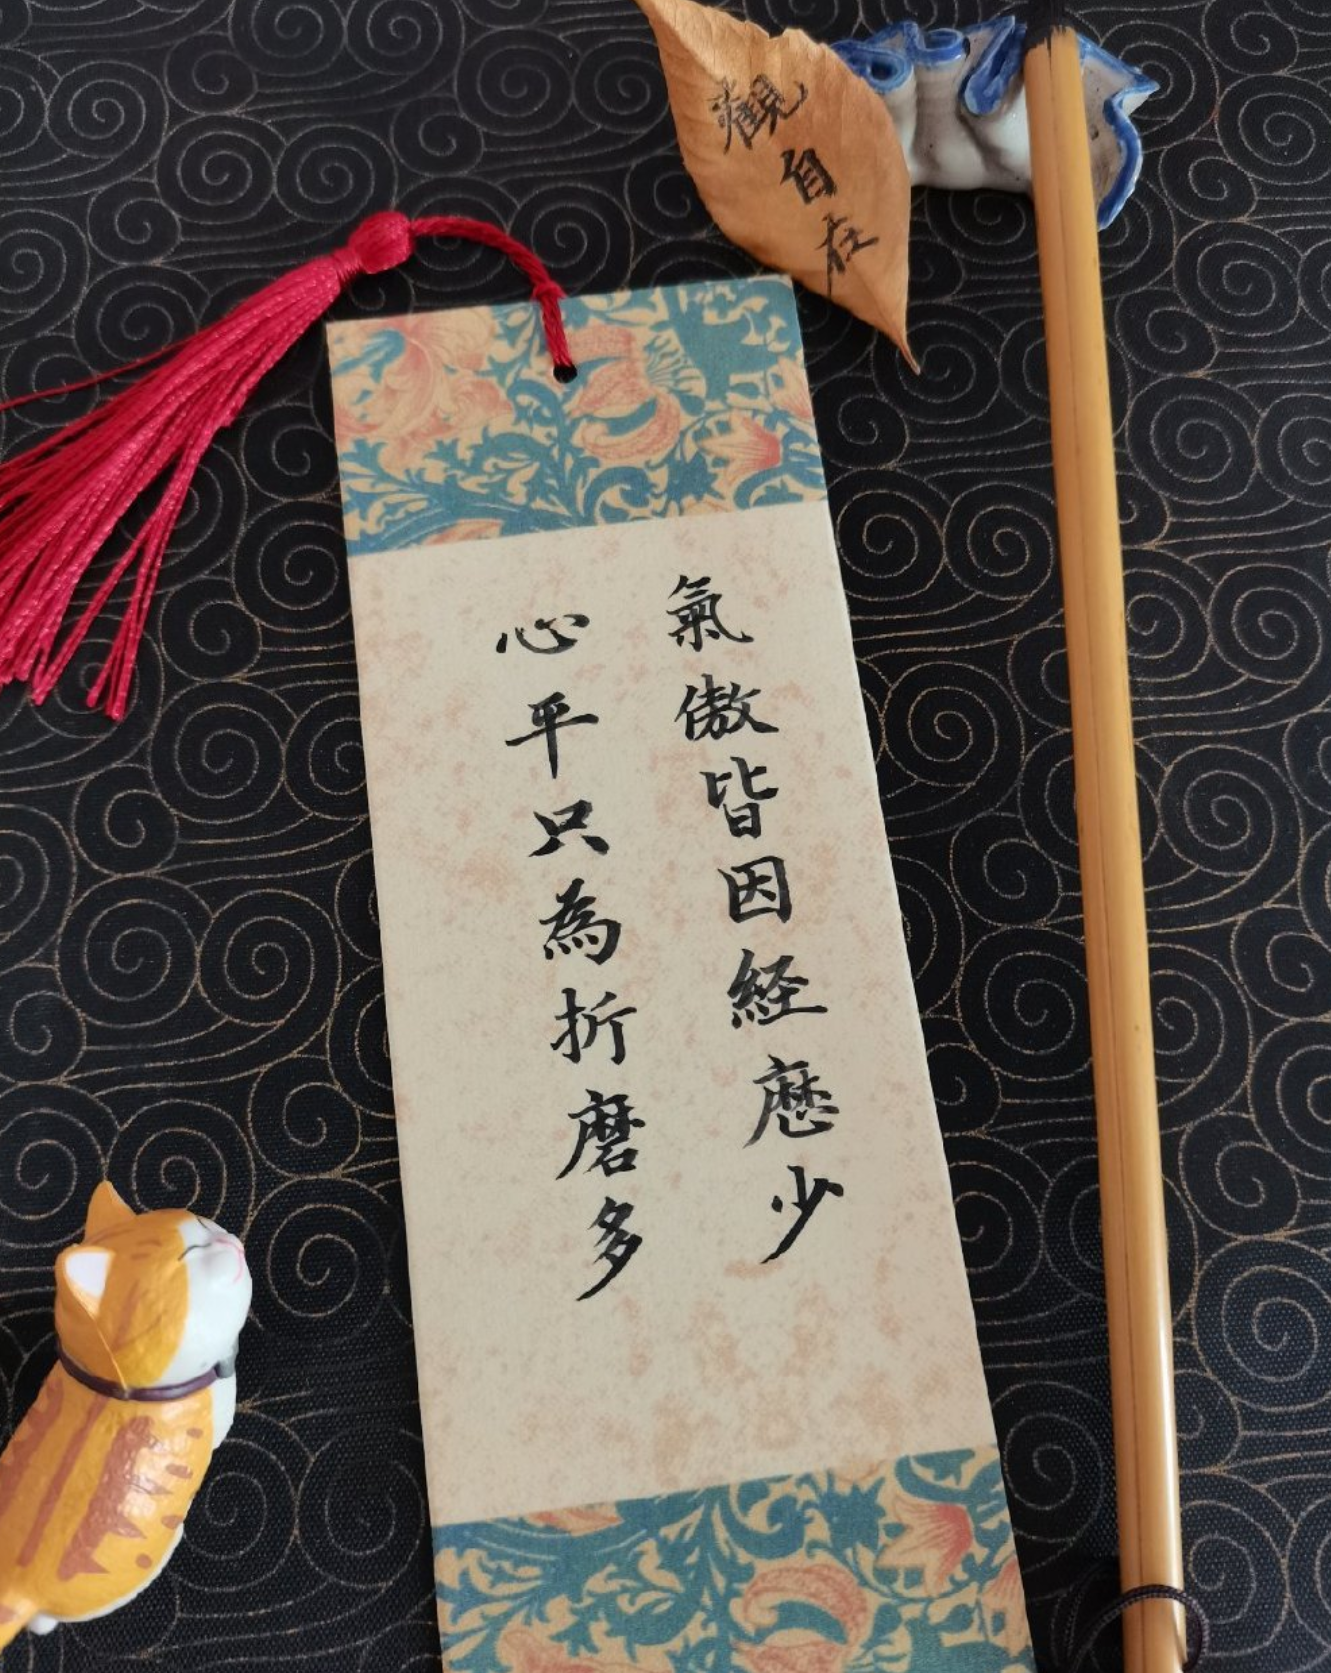 觀自在
氣傲皆因経歷少
心平只為折磨多